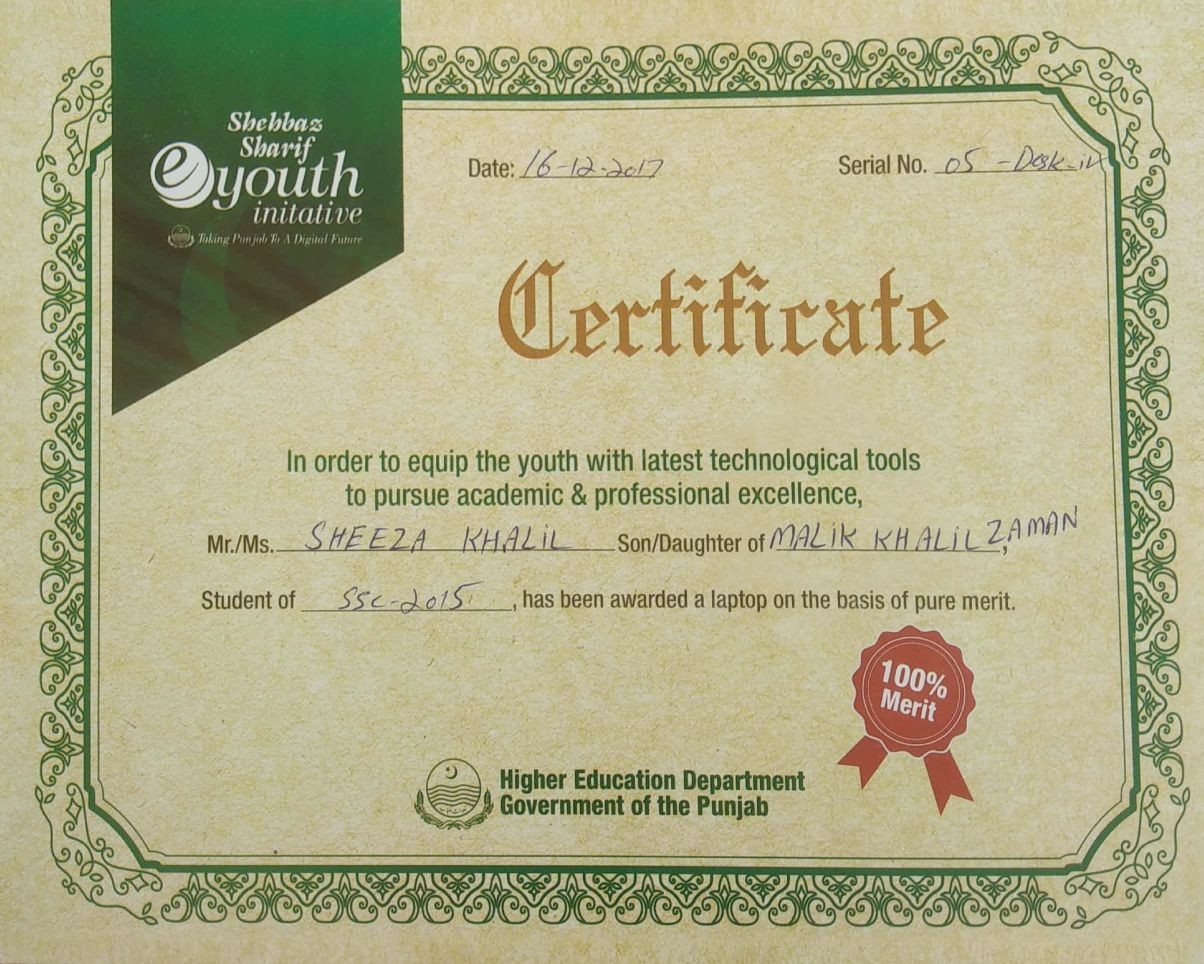 Shehbaz
Sharif
eyouth
initative
Taking Punjab To A Digital Future
Date: 16-12-2017
Serial No. 05 - Desk-iv
Certificate
In order to equip the youth with latest technological tools
to pursue academic & professional excellence,
Mr./Ms. SHEEZA KHALIL Son/Daughter of MALIK KHALIL ZAMAN,
Student of SSC-2015, has been awarded a laptop on the basis of pure merit.
100%
Merit
Higher Education Department
Government of the Punjab